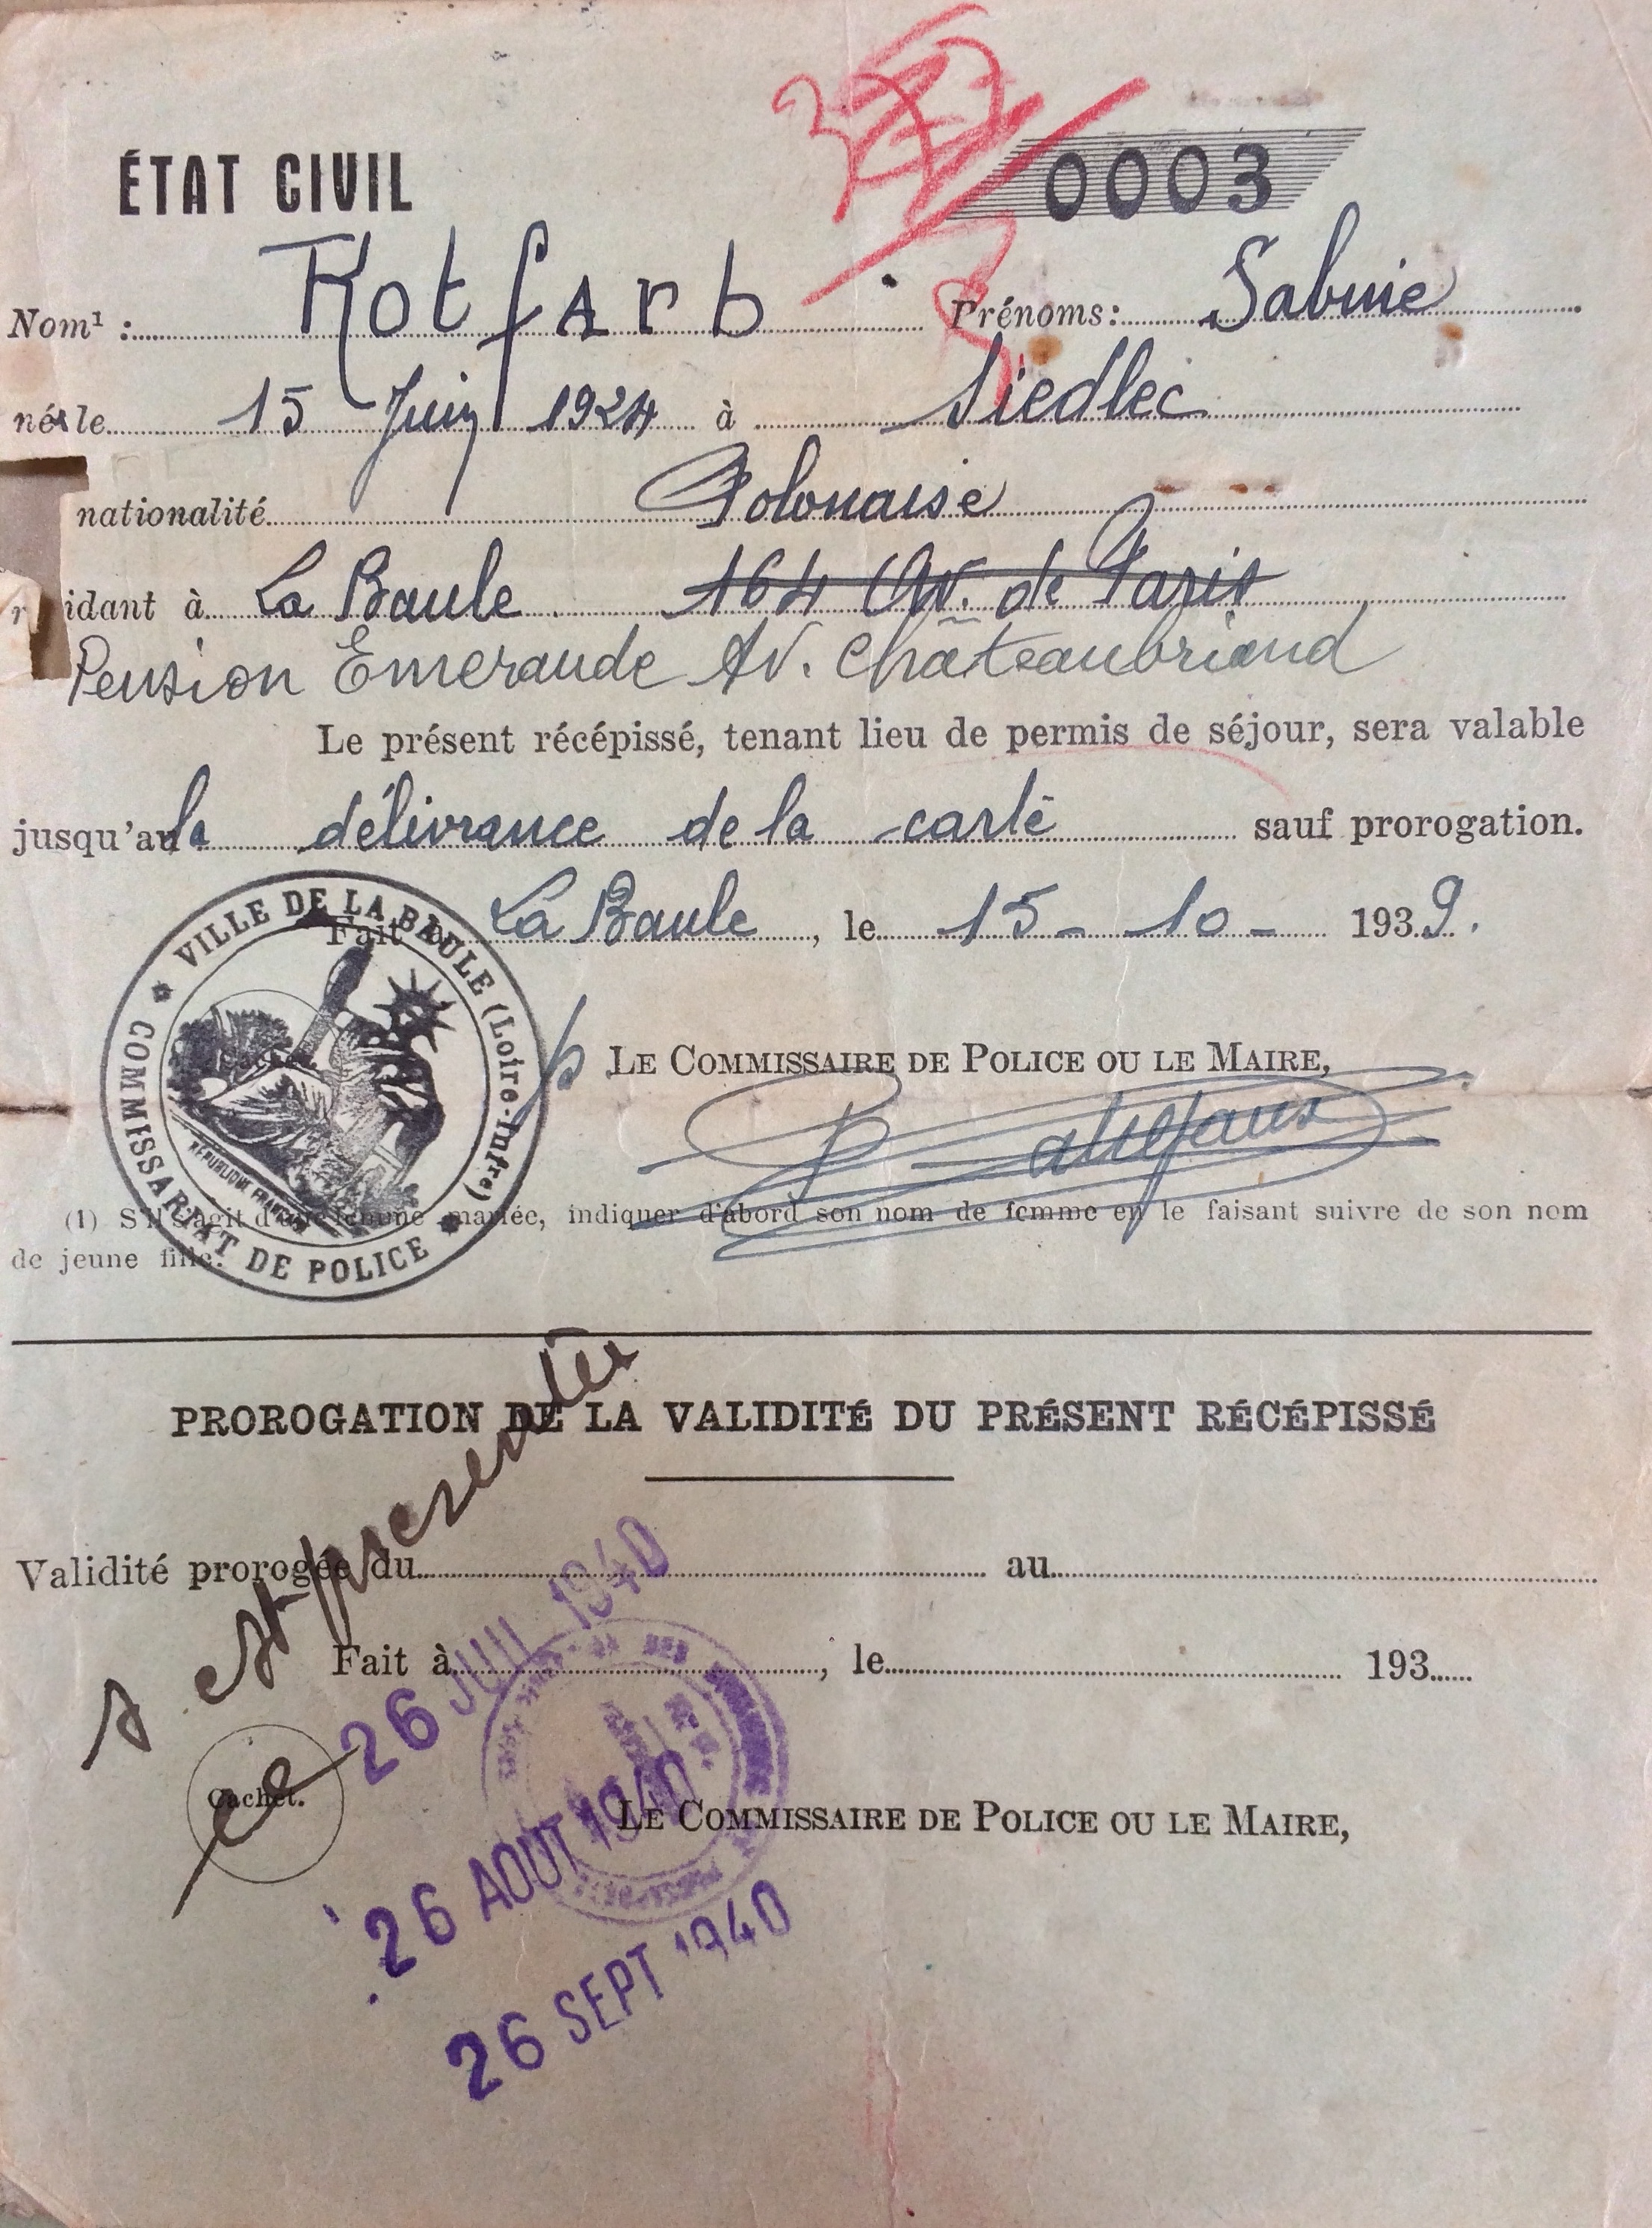 ÉTAT CIVIL
0003
Nom¹ : Rotfarb Prénoms: Sabine
née le 15 Juin 1924 à Siedlec
nationalité Polonaise
idant à La Baule 164 Av. de Paris
Pension Emeraude Av. Châteaubriand
Le présent récépissé, tenant lieu de permis de séjour, sera valable
jusqu'au la délivrance de la carte sauf prorogation.
Fait à La Baule, le 15 - 10 - 1939.
VILLE DE LA BAULE (Loire-Infre)
COMMISSARIAT DE POLICE
RÉPUBLIQUE FRANÇAISE
p LE COMMISSAIRE DE POLICE OU LE MAIRE,
(1) S'il s'agit d'une femme mariée, indiquer d'abord son nom de femme en le faisant suivre de son nom
de jeune fille.
PROROGATION DE LA VALIDITÉ DU PRÉSENT RÉCÉPISSÉ
Validité prorogée du au
s'est présentée
Fait à , le 193
26 JUIL 1940
Cachet.
ce
LE COMMISSAIRE DE POLICE OU LE MAIRE,
26 AOUT 1940
26 SEPT 1940